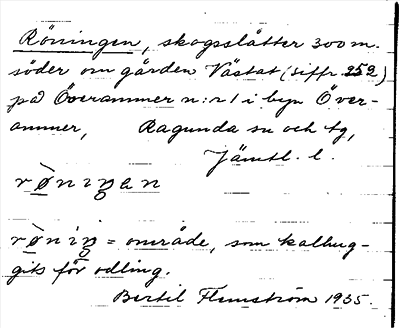 Röningen, skogsslåtter 300 m.
söder om gården Västat (siffr. 252)
på Överammer n:r 1 i byn Över-
ammer, Ragunda sn och tg,
Jämtl. l.
rø̀niŋen
rø̀niŋ = område, som kalhug-
gits för odling.
Bertil Flemström 1935.